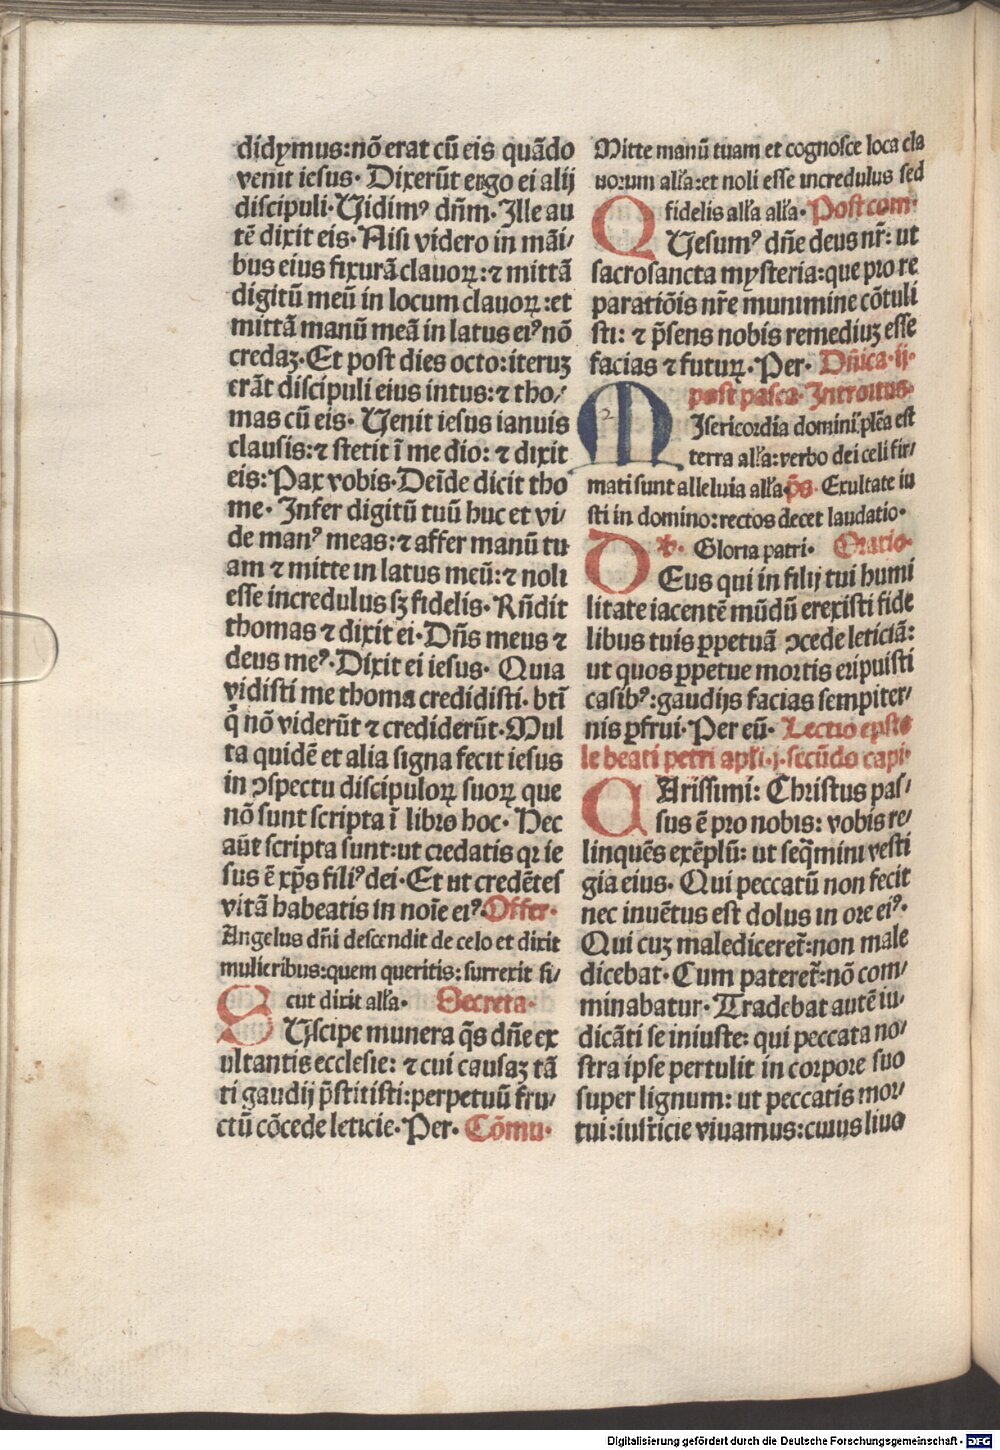 didymus:nō erat cū eis quādo
venit iesus· Dixerūt ergo ei alij
discipuli·Uidimꝰ dn̄m·Ille au
tē dixit eis·Nisi videro in māi⸗
bus eius fixurā clauoꝝ:⁊ mittā
digitū meū in locum clauoꝝ:et
mittā manū meā in latus eiꝰ nō
credaꝫ·Et post dies octo:iteruꝫ
erāt discipuli eius intus:⁊ tho⸗
mas cū eis· Uenit iesus ianuis
clausis:⁊ stetit ī me dio: ⁊ dixit
eis:Pax vobis·Deīde dicit tho
me· Infer digitū tuū huc et vi⸗
de manꝰ meas:⁊ affer manū tu
am ⁊ mitte in latus meū:⁊ noli
esse incredulus sꝫ fidelis·Rn̄dit
thomas ⁊ dixit ei·Dn̄s meus ⁊
deus meꝰ·Dixit ei iesus· Quia
vidisti me thoma credidisti·btī
q̄ nō viderūt ⁊ crediderūt·Mul
ta quidē et alia signa fecit iesus
in ↄspectu discipuloꝝ suoꝝ que
nō sunt scripta ī libro hoc· Hec
aūt scripta sunt:ut credatis qr ie
sus ē xp̄s filiꝰ dei·Et ut credētes
vitā habeatis in noīe eiꝰ·Offer·
Angelus dn̄i descendit de celo et dixit
mulieribus:quem queritis:surrexit si⸗
cut dixit all'a· Secreta·
SUscipe munera q̄s dn̄e ex
ultantis ecclesie: ⁊ cui causaꝫ tā
ti gaudij p̄stitisti:perpetuū fru⸗
ctū cōcede leticie·Per· Cōmu·
Mitte manū tuam et cognosce loca cla
uorum all'a:et noli esse incredulus sed
fidelis all'a all'a·Postcom·
QUesumꝰ dn̄e deus nr̄: ut
sacrosancta mysteria:que pro re
paratiōis nr̄e munimine cōtuli
sti: ⁊ p̄sens nobis remediuꝫ esse
facias ⁊ futuꝝ·Per· Dn̄ica·ij·
post pasca·Introitus·
MIsericordia domini plēa est
terra all'a:verbo dei celi fir⸗
mati sunt alleluia all'a·p̄s· Exultate iu
sti in domino:rectos decet laudatio·
℣· Gloria patri· Oratio·
DEus qui in filij tui humi
litate iacentē mūdū erexisti fide
libus tuis ꝑpetuā ↄcede leticiā:
ut quos ꝑpetue mortis eripuisti
casibꝰ:gaudijs facias sempiter⸗
nis ꝑfrui·Per eū· Lectio epsto
le beati petri apl'i·j·secūdo capi·
CArissimi: Christus pas⸗
sus ē pro nobis: vobis re⸗
linquēs exēplū: ut seq̄mini vesti
gia eius· Qui peccatū non fecit
nec inuētus est dolus in ore eiꝰ·
Qui cuꝫ malediceret̄:non male
dicebat·Cum pateret̄:nō com⸗
minabatur·Tradebat autē iu⸗
dicāti se iniuste: qui peccata no⸗
stra ipse pertulit in corpore suo
super lignum: ut peccatis mor⸗
tui:iusticie viuamus:cuius liuo
Digitalisierung gefördert durch die Deutsche Forschungsgemeinschaft - DFG